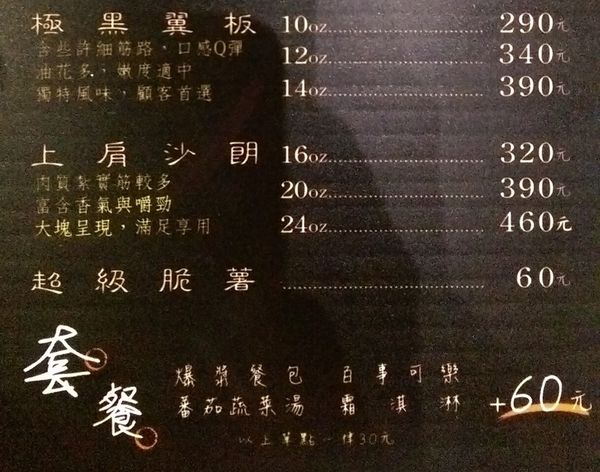 極黑翼板 10oz. 290元
含些許細筋路,口感Q彈 12oz. 340元
油花多,嫩度適中
獨特風味,顧客首選 14oz. 390元
上肩沙朗 16oz. 320元
肉質紮實筋較多 20oz. 390元
富含香氣與嚼勁
大塊呈現,滿足享用 24oz. 460元
超級脆薯 60元
套餐 爆漿餐包 百事可樂
蕃茄蔬菜湯 霜淇淋 +60元
以上單點一律30元